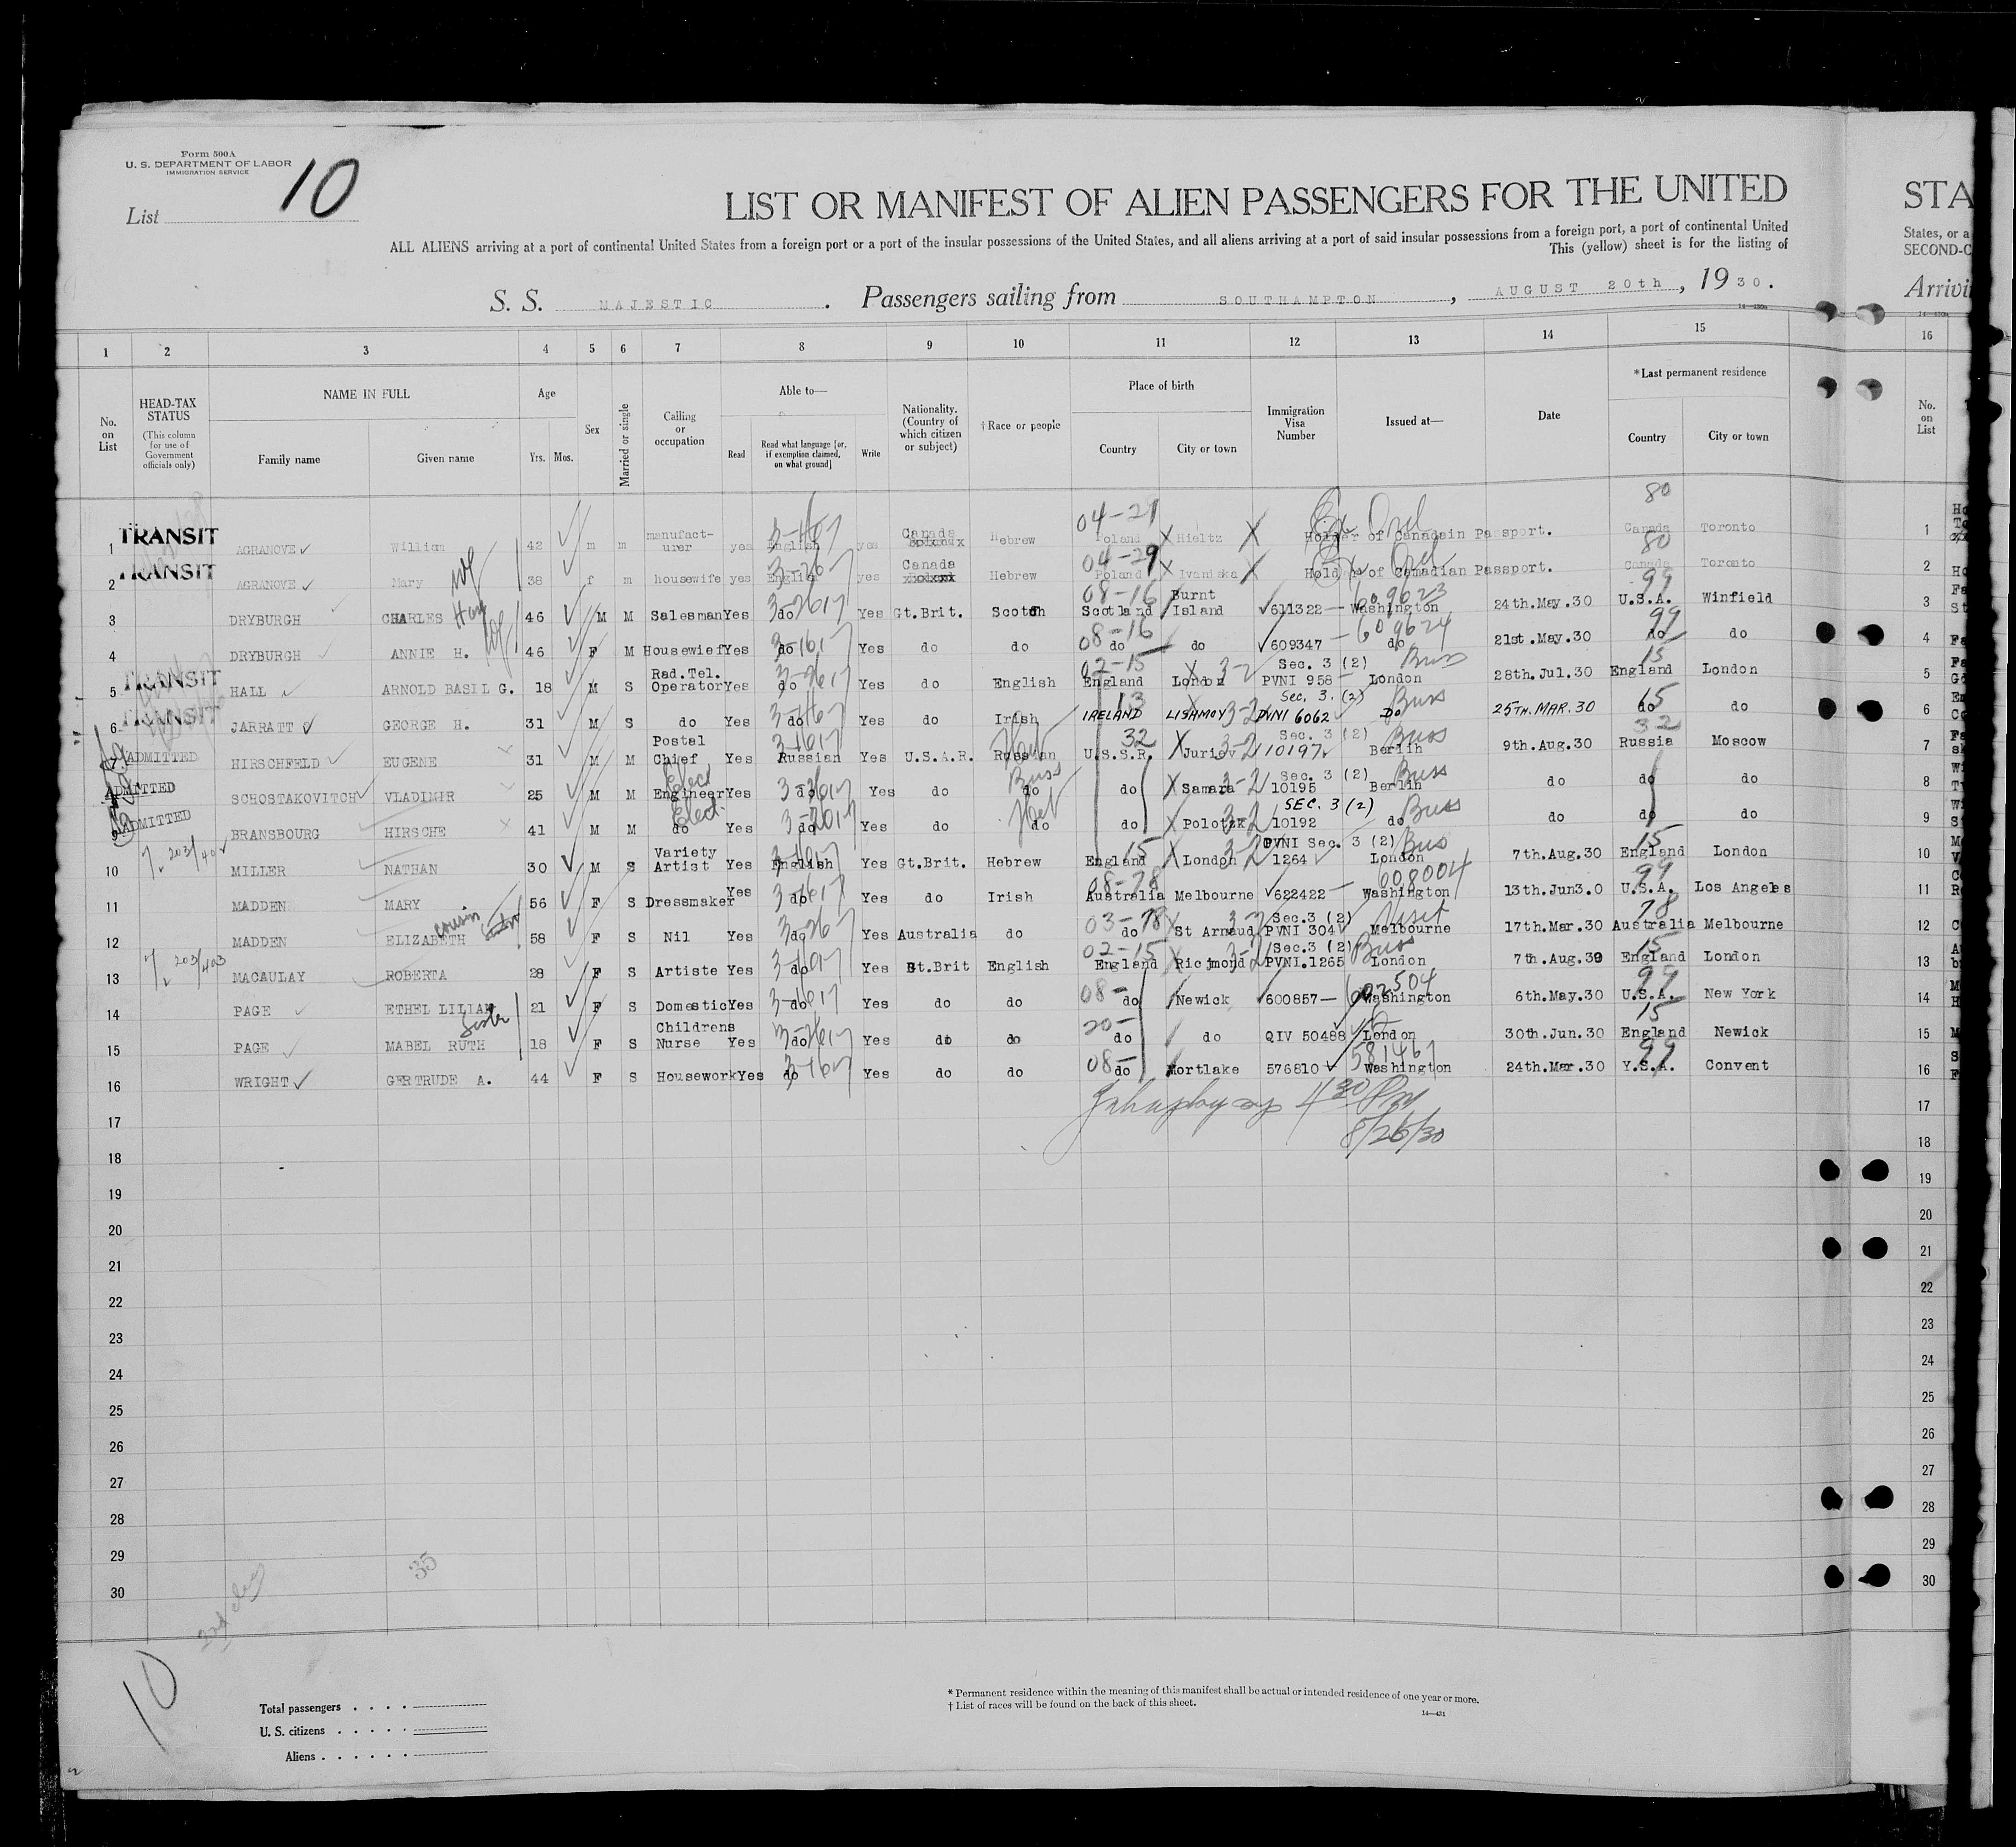 Form 500 A
U. S. DEPARTMENT OF LABOR
IMMIGRATION SERVICE
List 10
LIST OR MANIFEST OF ALIEN PASSENGERS FOR THE UNITED
STA
ALL ALIENS arriving at a port of continental United States from a foreign port or a port of the insular possessions of the United States, and all aliens arriving at a port of said insular possessions from a foreign port, a port of continental United
States, or a
This (yellow) sheet is for the listing of
SECOND-C
S. S. MAJESTIC. Passengers sailing from SOUTHAMPTON, AUGUST 20th, 1930.
Arrivi
1 2 3 4 5 6 7 8 9 10 11 12 13 14 15 16
No. on List
HEAD-TAX STATUS (This column for use of Government officials only)
NAME IN FULL
Family name Given name
Age
Yrs. Mos.
Sex
Married or single
Calling or occupation
Able to—
Read Read what language [or, if exemption claimed, on what ground] Write
Nationality. (Country of which citizen or subject)
† Race or people
Place of birth
Country City or town
Immigration Visa Number
Issued at—
Date
* Last permanent residence
Country City or town
No. on List
1 TRANSIT AGRANOVE William 42 m m manufacturer yes English yes Canada Hebrew 04-29 Poland Hieltz Holder of Canadain Passport. 80 Canada Toronto 1
2 TRANSIT AGRANOVE Mary wf 38 f m housewife yes English yes Canada Hebrew 04-29 Poland Ivaniska Hold of Canadian Passport. 80 Canada Toronto 2
3 DRYBURGH CHARLES 46 M M Salesman Yes do Yes Gt.Brit. Scotch 08-16 Scotland Burnt Island 611322 609623 Washington 24th.May.30 99 U.S.A. Winfield 3
4 DRYBURGH ANNIE H. wf 46 F M Housewief Yes do Yes do do 08-16 do do 609347 609624 do 21st.May.30 99 do do 4
5 TRANSIT HALL ARNOLD BASIL G. 18 M S Rad.Tel. Operator Yes do Yes do English 02-15 England London 3-2 Sec. 3 (2) PVNI 958 Buss London 28th.Jul.30 15 England London 5
6 TRANSIT JARRATT GEORGE H. 31 M S do Yes do Yes do Irish 13 IRELAND LISAMOY 3-2 Sec. 3. (2) PVNI 6062 Buss Do 25TH.MAR.30 15 do do 6
7 ADMITTED HIRSCHFELD EUGENE 31 M M Postal Chief Yes Russian Yes U.S.A.R. Russian 32 U.S.S.R. Juriev 3-2 Sec. 3 (2) 10197 Buss Berlin 9th.Aug.30 32 Russia Moscow 7
8 ADMITTED SCHOSTAKOVITCH VLADIMIR 25 M M Elect Engineer Yes do Yes do do do Samara 3-2 Sec. 3 (2) 10195 Buss Berlin do do do 8
9 ADMITTED BRANSBOURG HIRSCHE 41 M M Elect. do Yes do Yes do do do Polotzk 3-2 SEC. 3 (2) 10192 Buss do do do do 9
10 203/402 MILLER NATHAN 30 M S Variety Artist Yes English Yes Gt.Brit. Hebrew 15 England London 3-2 PVNI Sec. 3 (2) 1264 Bus London 7th.Aug.30 15 England London 10
11 MADDEN MARY 56 F S Dressmaker Yes do Yes do Irish 08-78 Australia Melbourne 622422 608004 Washington 13th.Jun3.0 99 U.S.A. Los Angeles 11
12 MADDEN ELIZABETH cousin 58 F S Nil Yes do Yes Australia do 03-78 do St Arnaud 3-2 Sec.3 (2) PVNI 304 Visit Melbourne 17th.Mar.30 78 Australia Melbourne 12
13 203/403 MACAULAY ROBERTA 28 F S Artiste Yes do Yes Gt.Brit English 02-15 England Richmond 3-2 Sec.3 (2) PVNI.1265 Buss London 7th.Aug.30 15 England London 13
14 PAGE ETHEL LILIAN 21 F S Domestic Yes do Yes do do 08- do Newick 600857 602504 Washington 6th.May.30 99 U.S.A. New York 14
15 PAGE MABEL RUTH Sister 18 F S Childrens Nurse Yes do Yes do do 20- do do QIV 50488 London 30th.Jun.30 15 England Newick 15
16 WRIGHT GERTRUDE A. 44 F S Housework Yes do Yes do do 08- do Mortlake 576810 581467 Washington 24th.Mar.30 99 Y.S.A. Convent 16
17 4 30 Pm 17
8/26/30
18 18
19 19
20 20
21 21
22 22
23 23
24 24
25 25
26 26
27 27
28 28
29 29
30 30
35
10
Total passengers
U. S. citizens
Aliens
* Permanent residence within the meaning of this manifest shall be actual or intended residence of one year or more.
† List of races will be found on the back of this sheet.
14—431